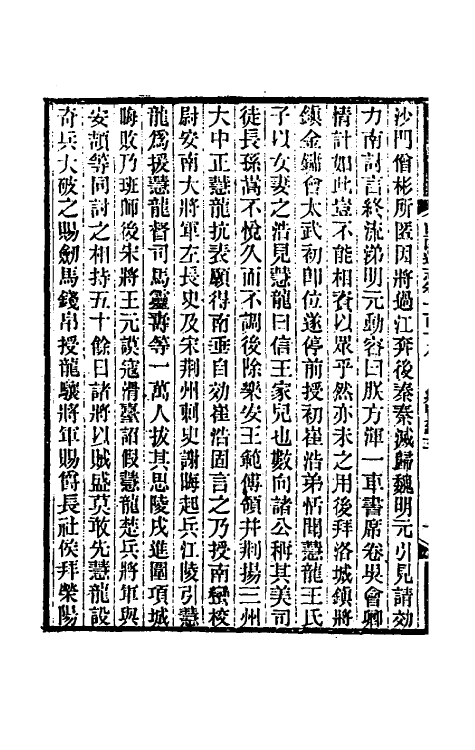 沙門僧彬所匿因將過江奔後秦秦滅歸魏明元引見請効
力南討言終流涕明元動容曰朕方渾一車書席卷吳會卿
情計如此豈不能相資以眾乎然亦未之用後拜洛城鎮將
鎮金鏞會太武初即位遂停前授初崔浩弟恬聞慧龍王氏
子以女妻之浩見慧龍曰信王家兒也數向諸公稱其美司
徒長孫嵩不悅久而不調後除樂安王範傅領并荊揚三州
大中正慧龍抗表願得南垂自効崔浩固言之乃授南蠻校
尉安南大將軍左長史及宋荊州刺史謝晦起兵江陵引慧
龍為援慧龍督司馬靈壽等一萬人拔其思陵戍進圍項城
晦敗乃班師後宋將王元謨寇滑臺詔假慧龍楚兵將軍與
安頡等同討之相持五十餘日諸將以賊盛莫敢先慧龍設
奇兵大破之賜劒馬錢帛授龍驤將軍賜爵長社侯拜滎陽